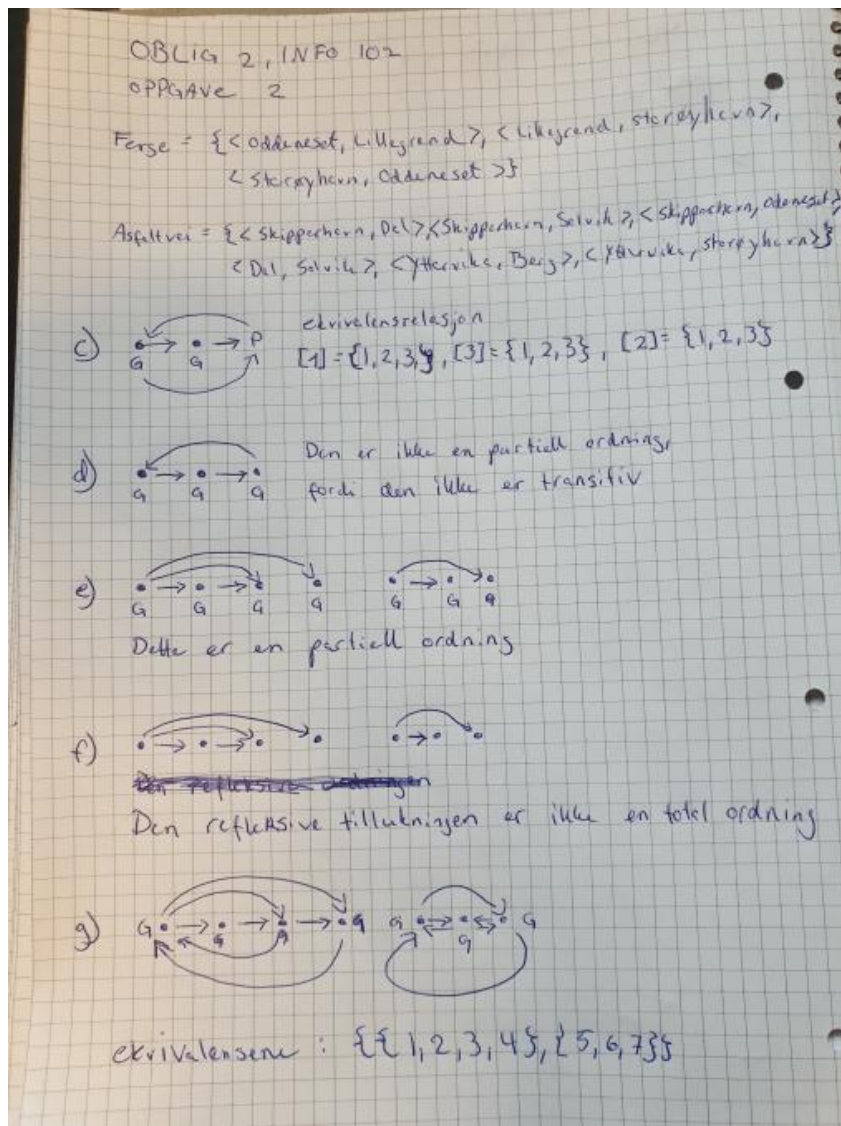 OBLIG 2, INFO 102
OPPGAVE 2
Ferge = {<Oddeneset, Lillegrand>, <Lillegrand, Storøyhavn>,
<Storøyhavn, Oddeneset>}
Asfaltvei = {<Skipperhavn, Dal>,<Skipperhavn, Solvik>, <Skipperhavn, Odeneset>,
<Dal, Solvik>, <Ytterviks, Berg>, <Ytterviks, Storøyhavn>}
c) G G P ekvivalensrelasjon
[1] = {1,2,3}, [3] = {1,2,3}, [2] = {1,2,3}
d) G G G Den er ikke en partiell ordning,
fordi den ikke er transitiv
e) G G G G G G G
Dette er en partiell ordning
f)
Den refleksive tillukningen er ikke en total ordning
g) G G G G G G G
ekvivalensene : {{1,2,3,4},{5,6,7}}